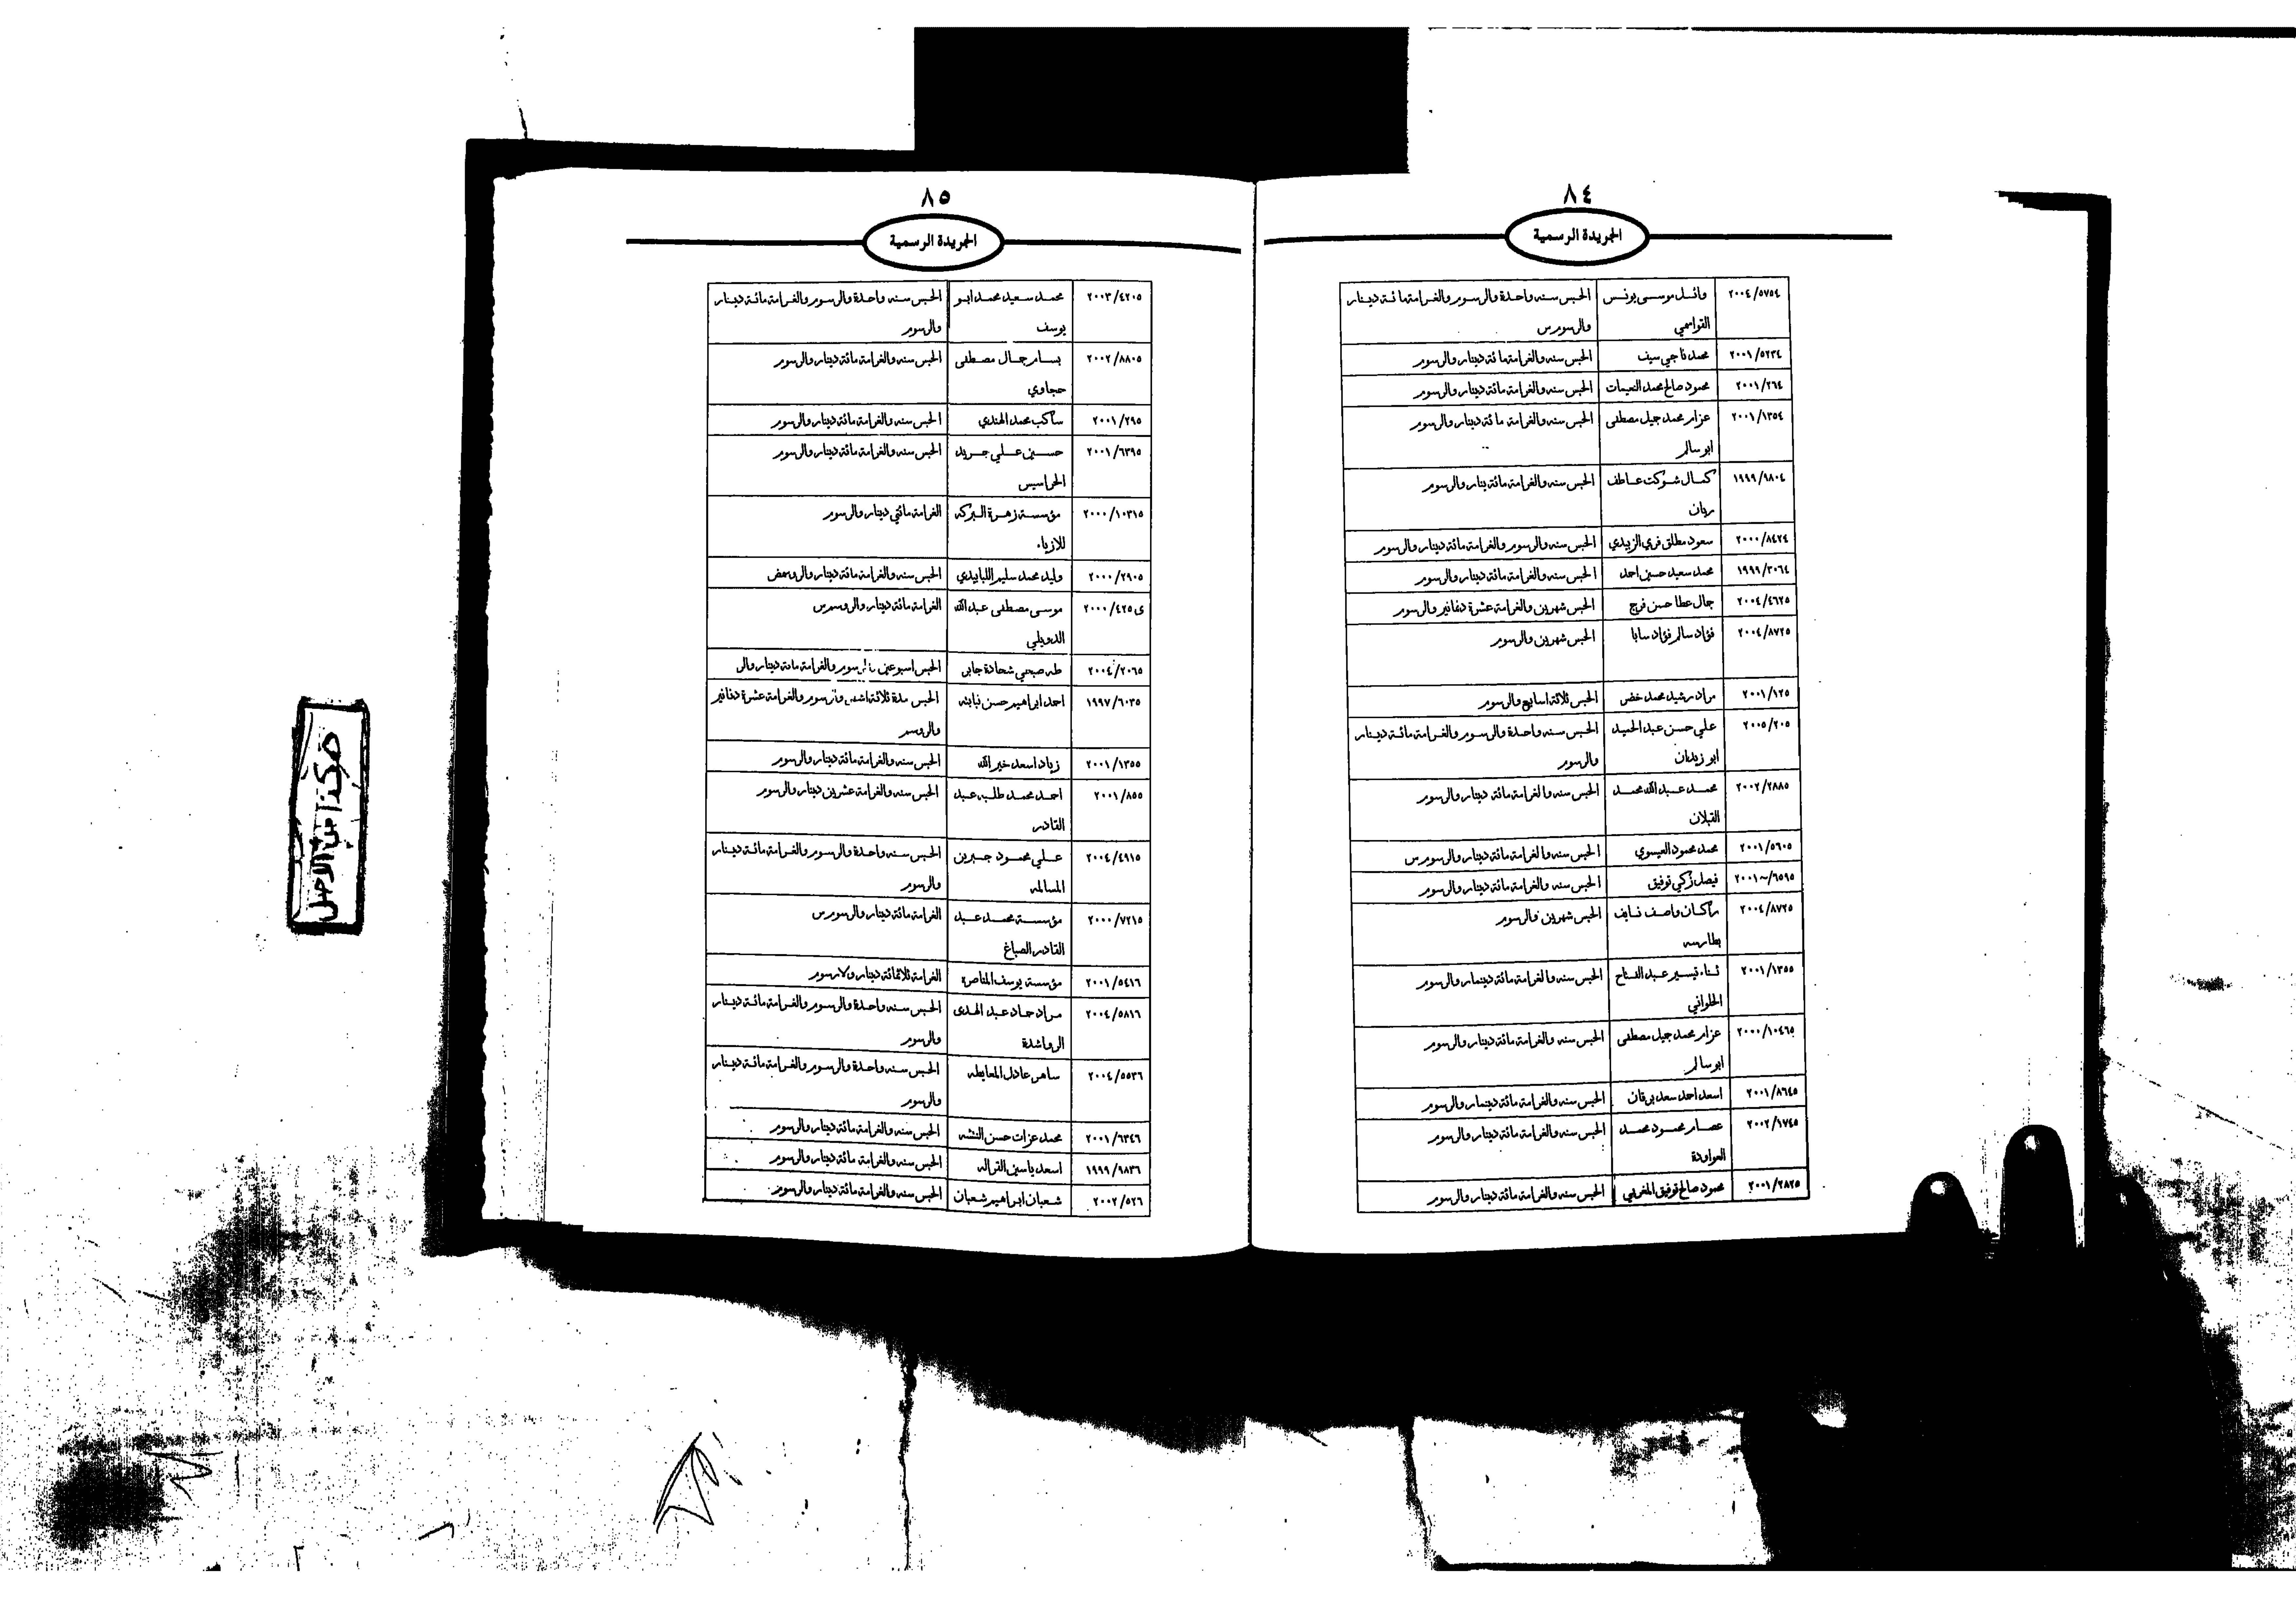 ٨٤
الجريدة الرسمية
٢٠٠٤/٥٧٥٤ وائل موسى يونس الحبس سنه واحدة والرسوم والغرامة مائة دينار
القواسمي والرسومرس
٢٠٠١/٥٢٣٤ محمد ناجي سيف الحبس سنه والغرامة مائة دينار والرسوم
٢٠٠١/٢٦٤ محمود صالح محمد النعيمات الحبس سنه والغرامة مائة دينار والرسوم
٢٠٠١/١٣٥٤ عزام محمد جميل مصطفى الحبس سنه والغرامة مائة دينار والرسوم
ابو سالم
١٩٩٩/٩٨٠٤ كمال شوكت عاطف الحبس سنه والغرامة مائة ينار والرسوم
ريان
٢٠٠٠/٨٤٢٤ سعود مطلق فري الزبيدي الحبس سنه والرسوم والغرامة مائة دينار والرسوم
١٩٩٩/٣٠٦٤ محمد سعيد حسين احمد الحبس سنه والغرامة مائة دينار والرسوم
٢٠٠٤/٤٦٢٥ جمال عطا حسن فرج الحبس شهرين والغرامة عشرة دنانير والرسوم
٢٠٠٤/٨٧٢٥ فؤاد سالم فؤاد سابا الحبس شهرين والرسوم
٢٠٠١/١٢٥ مراد رشيد محمد خضر الحبس ثلاثة اسابيع والرسوم
٢٠٠٥/٢٠٥ علي حسن عبد الحميد الحبس سنه واحدة والرسوم والغرامة مائة دينار
ابو زيدان والرسوم
٢٠٠٢/٢٨٨٥ محمد عبد الله محمد الحبس سنه والغرامة مائة دينار والرسوم
القبلان
٢٠٠١/٥٦٠٥ محمد محمود العيسوي الحبس سنه والغرامة مائة دينار والرسومرس
٢٠٠١~/٦٥٩٥ فيصل زكي توفيق الحبس سنه والغرامة مائة دينار والرسوم
٢٠٠٤/٨٧٢٥ راكان واصف نايف الحبس شهرين والرسوم
بطارسه
٢٠٠١/١٣٥٥ ثناء تيسير عبد الفتاح الحبس سنه والغرامة مائة دينمار والرسوم
الحلواني
٢٠٠٠/١٠٤٦٥ عزام محمد جميل مصطفى الحبس سنه والغرامة مائة دينار والرسوم
ابو سالم
٢٠٠١/٨٦٤٥ اسعد احمد سعد برقان الحبس سنه والغرامة مائة دينمار والرسوم
٢٠٠٢/١٧٤٥ عصام محمود محمد الحبس سنه والغرامة مائة دينار والرسوم
العواودة
٢٠٠١/٢٨٢٥ محمود صالح توفيق المغربي الحبس سنه والغرامة مائة دينار والرسوم
٨٥
الجريدة الرسمية
٢٠٠٣/٤٢٠٥ محمد سعيد محمد ابو الحبس سنه واحدة والرسوم والغرامة مائة دينار
يوسف والرسوم
٢٠٠٢/٨٨٠٥ بسام جمال مصطفى الحبس سنه والغرامة مائة دينار والرسوم
حجاوي
٢٠٠١/٢٩٥ ساكب محمد الهندي الحبس سنه والغرامة مائة دينار والرسوم
٢٠٠١/٦٣٩٥ حسين علي جريد الحبس سنه والغرامة مائة دينار والرسوم
الخراسيس
٢٠٠٠/١٠٣١٥ مؤسسة زهرة البركه الغرامة مائتي دينار والرسوم
للازياء
٢٠٠٠/٢٩٠٥ وليد محمد سليم اللبابيدي الحبس سنه والغرامة مائة دينار والروسمض
٢٠٠٠/٤٢٥ى موسى مصطفى عبد الله الغرامة مائة دينار والروسمرس
الدويلي
٢٠٠٤/٢٠٦٥ طه صبحي شحادة جابر الحبس اسبوعين والرسوم والغرامة مائة دينار والر
١٩٩٧/٦٠٣٥ احمد ابراهيم حسن نبابته الحبس مدة ثلاثة اشهر والرسوم والغرامة عشرة دنانير
والروسم
٢٠٠١/١٣٥٥ زياد اسعد خير الله الحبس سنه والغرامة مائة دينار والرسوم
٢٠٠١/٨٥٥ احمد محمد طلب عبد الحبس سنه والغرامة عشرين دينار والرسوم
القادر
٢٠٠٤/٤٩١٥ علي محمود جبرين الحبس سنه واحدة والرسوم والغرامة مائة دينار
المسالمه والرسوم
٢٠٠٠/٧٢١٥ مؤسسة محمد عبد الغرامة مائة دينار والرسومرس
القادر الصباغ
٢٠٠١/٥٤١٦ مؤسسة يوسف المناصره الغرامة ثلاثمائة دينار ولارسوم
٢٠٠٤/٥٨١٦ مراد حماد عبد الهدى الحبس سنه واحدة والرسوم والغرامة مائة دينار
الرواشدة والرسوم
٢٠٠٤/٥٥٣٦ ساهر عادل المعايطه الحبس سنه واحدة والرسوم والغرامة مائة دينار
والرسوم
٢٠٠١/٦٣٤٦ محمد عزات حسن النتشه الحبس سنه والغرامة مائة دينار والرسوم
١٩٩٩/٩٨٣٦ اسعد ياسين القراله الحبس سنه والغرامة مائة دينار والرسوم
٢٠٠٢/٥٢٦ شعبان ابراهيم شعبان الحبس سنه والغرامة مائة دينار والرسوم
هكذا من الاصل